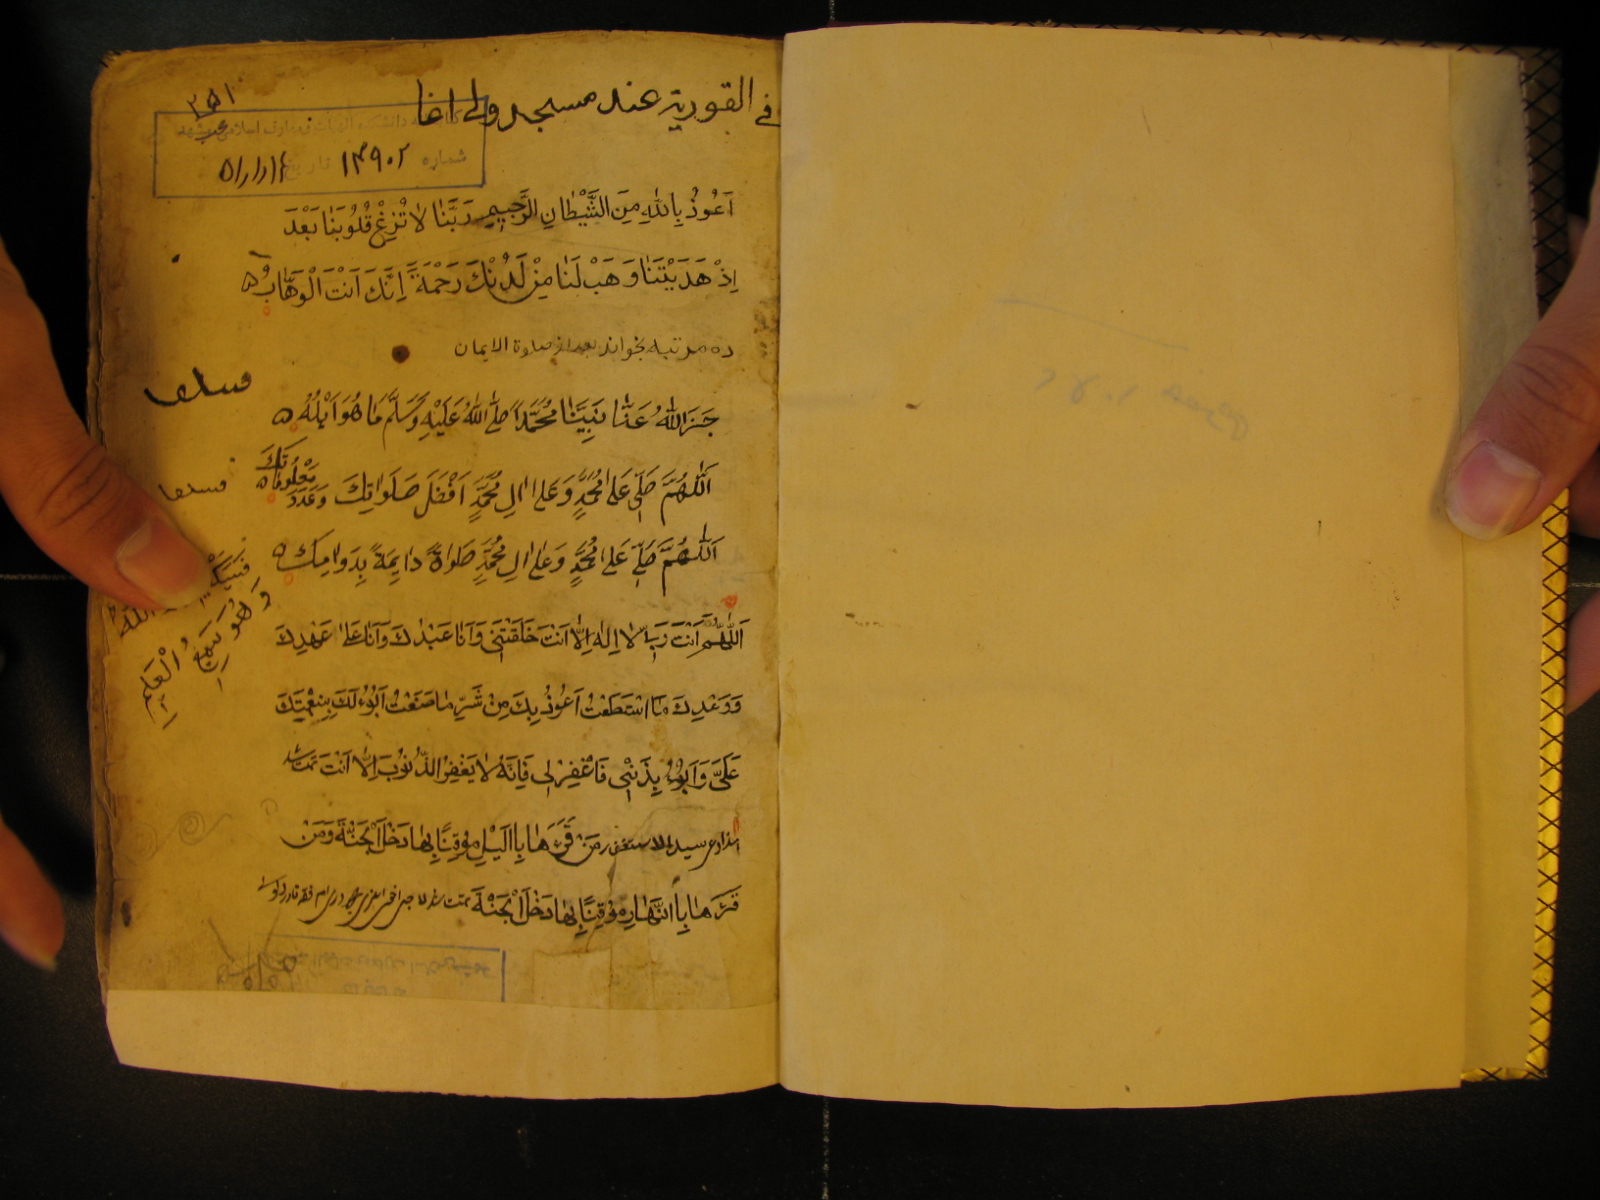 في القورية عند مسجد ولي اغا
۳۵۱
كتابخانه دانشكده الهيات و معارف اسلامى مشهد
شماره ۱۴۹۰۲ تاريخ
اَعُوذُ بِاللهِ مِنَ الشَّيْطَانِ الرَّجِيمِ رَبَّنَا لَا تُزِغْ قُلُوبَنَا بَعْدَ
اِذْ هَدَيْتَنَا وَ هَبْ لَنَا مِنْ لَدُنْكَ رَحْمَةً اِنَّكَ اَنْتَ الْوَهَّابُ ۵
ده مرتبه بخواند بعد از صلوة الايمان
جَزَ اللهُ عَنَّا نَبِيَّنَا مُحَمَّداً صَلَّ اللهُ عَلَيْهِ وَسَلَّمَ مَا هُوَ اَهْلُهُ ۵
اَللّٰهُمَّ صَلِّى عَلٰى مُحَمَّدٍ وَ عَلٰى اٰلِ مُحَمَّدٍ اَفْضَلَ صَلَوَاتِكَ وَ عَدَدَ مَعْلُومَاتِكَ ۵
اَللّٰهُمَّ صَلِّ عَلٰى مُحَمَّدٍ وَ عَلٰى اٰلِ مُحَمَّدٍ صَلَوٰاةً دَايِمَةً بِدَوَامِكَ ۵
اَللّٰهُمَّ اَنْتَ رَبِّ لَا اِلٰهَ اِلَّا اَنْتَ خَلَقْتَنِى وَ اَنَا عَبْدُكَ وَ اَنَا عَلٰى عَهْدِكَ
وَ وَعْدِكَ مَا اسْتَطَعْتُ اَعُوذُ بِكَ مِنْ شَرِّ مَا صَنَعْتُ اَبُوءُ لَكَ بِنِعْمَتِكَ
عَلَىَّ وَ اَبُوءُ بِذَنْبِى فَاغْفِرْ لِى فَاِنَّهُ لَا يَغْفِرُ الذُّنُوبَ اِلَّا اَنْتَ
سيد الاستغفر مَنْ قَرَءَ هَا بِااللَّيْلِ مُوقِنًا بِهَا دَخَلَ اَلْجَنَّةَ وَ مَنْ
قَرَءَ هَا بِاالنَّهَارِ مُوقِنًا بِهَا دَخَلَ اَلْجَنَّةَ
فَسَيَكْفِيكَهُمُ اللّٰهُ
وَ هُوَ سَمِيعُ الْعَلِيمُ